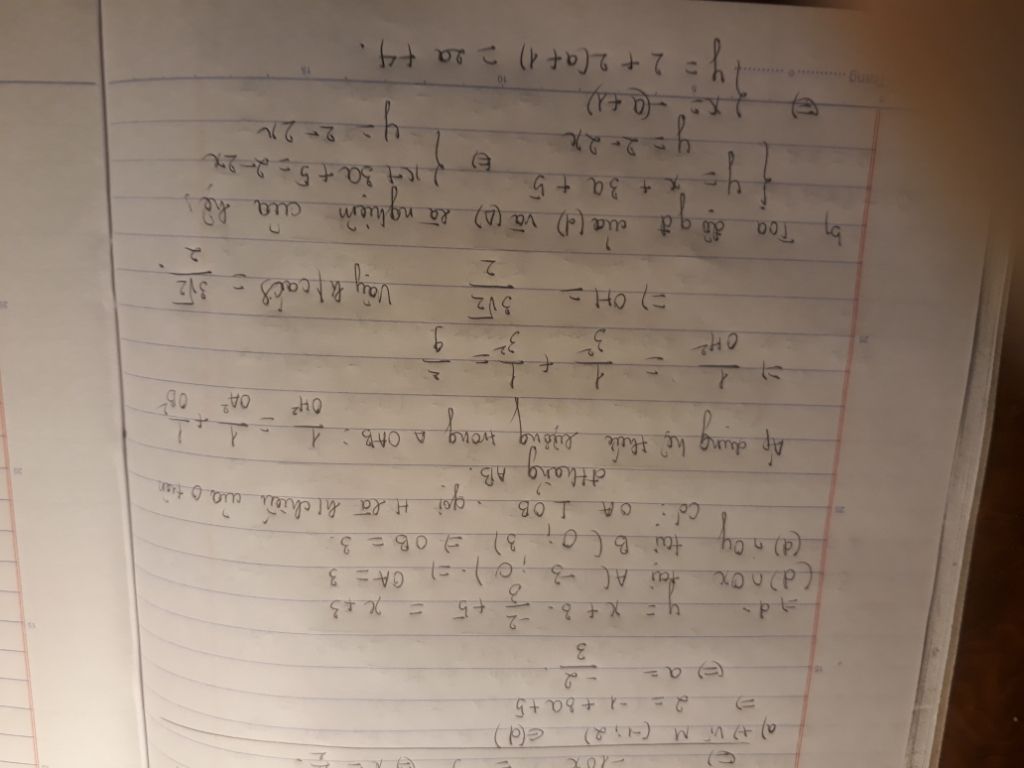 (=) -10x =
a) +) Vì M (-1; 2) ∈ (d)
=) 2 = -1 + 3a + 5
(=) a = -2/3.
=) d: y = x + 3. -2/3 + 5 = x + 3
(d) ∩ Ox tại A(-3; 0) =) OA = 3
(d) ∩ Oy tại B (0; 3) =) OB = 3.
Có: OA ⊥ OB. gọi H là h/chiếu của O trên
đthẳng AB.
Áp dụng hệ thức lượng trong Δ OAB: 1/OH² = 1/OA² + 1/OB²
=) 1/OH² = 1/3² + 1/3² = 2/9
=) OH = 3√2/2 Vậy k/cách = 3√2/2.
b) Toạ độ gđ của (d) và (Δ) là nghiệm của hệ:
{ y = x + 3a + 5 (=) { x + 3a + 5 = 2 - 2x
y = 2 - 2x y = 2 - 2x
(=) { x = -(a+1)
y = 2 + 2(a+1) = 2a + 4.